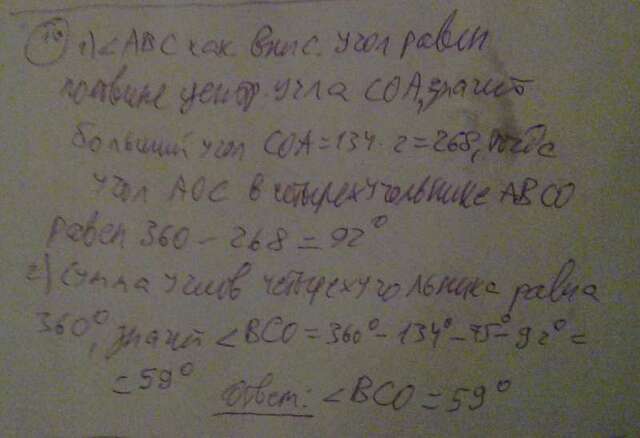 16 1) ∠ABC как впис. угол равен
половине центр. угла COA, значит
больший угол COA = 134 · 2 = 268, тогда
угол AOC в четырехугольнике ABCO
равен 360 - 268 = 92°
2) Сумма углов четырехугольника равна
360°, значит ∠BCO = 360° - 134° - 75° - 92° =
= 59°
Ответ: ∠BCO = 59°